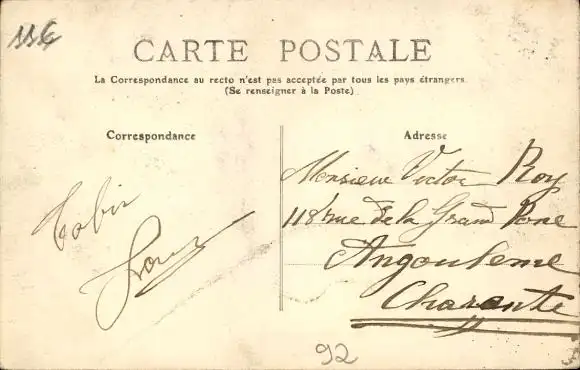 CARTE POSTALE
La Correspondance au recto n'est pas acceptée par tous les pays étrangers.
(Se renseigner à la Poste)
Correspondance
Adresse
Monsieur Victor Roy
118 rue de la Grand
Angouleme
Charente
92